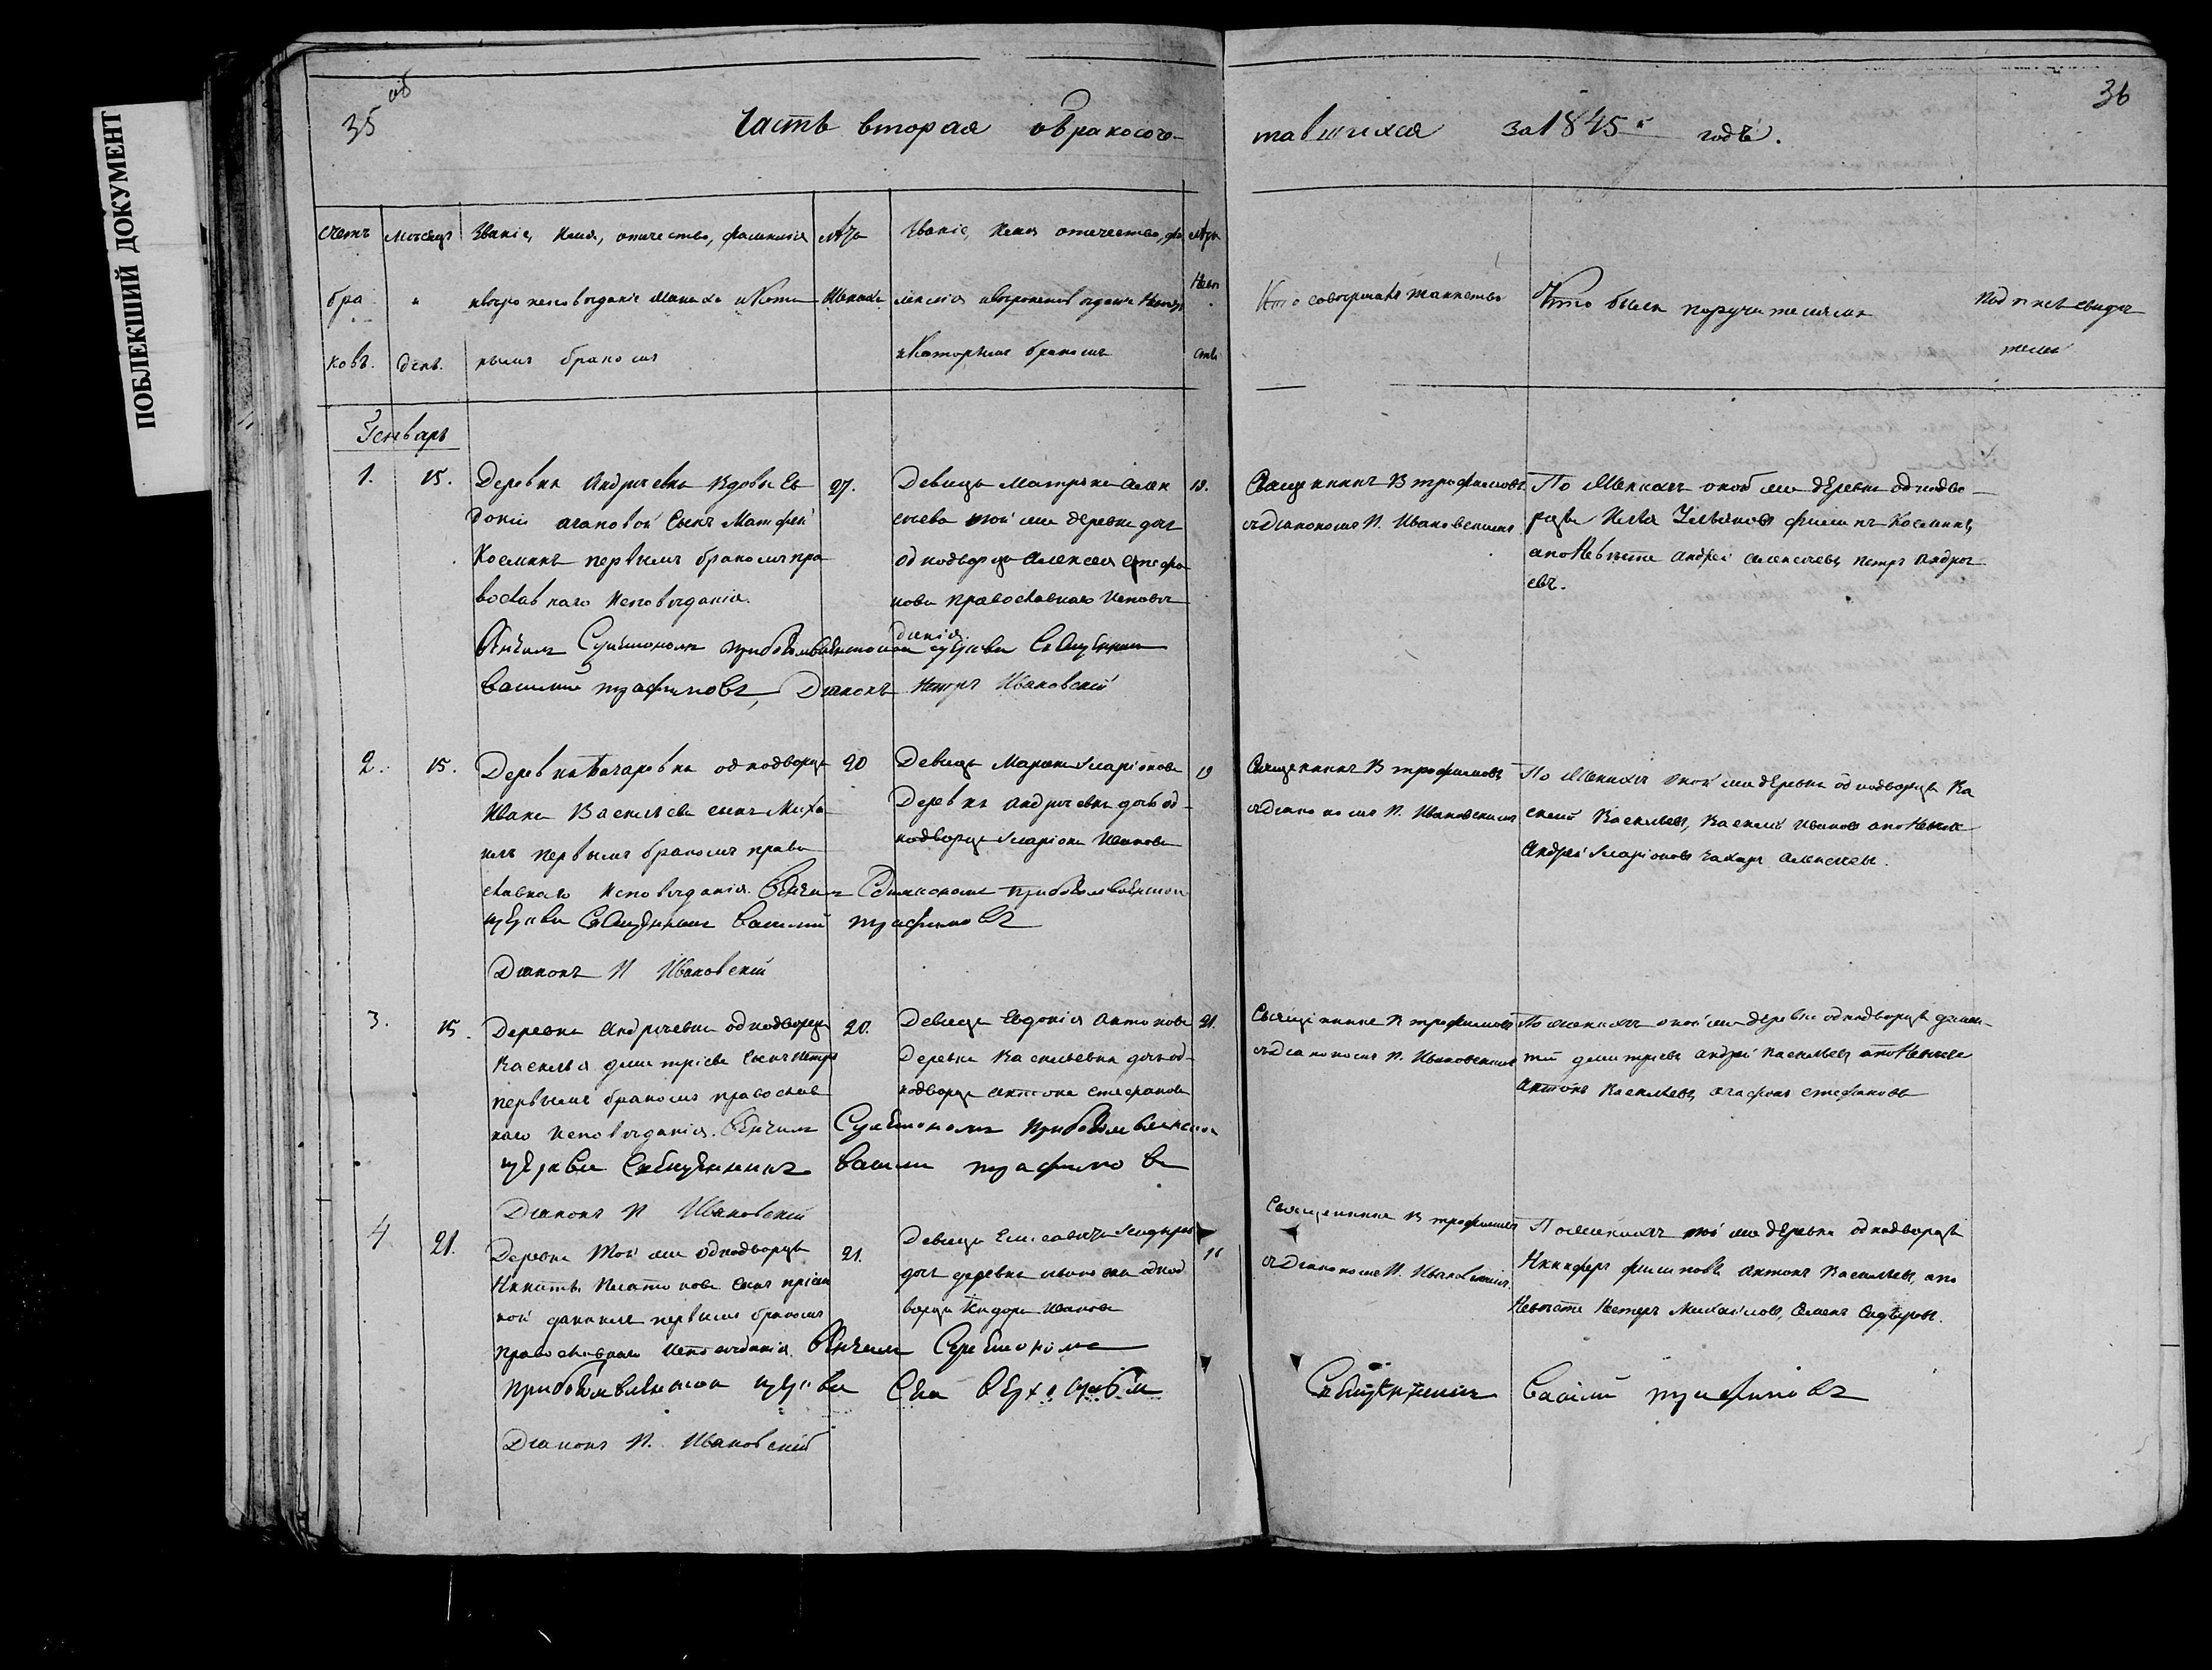 ПОБЛЕКШИЙ ДОКУМЕНТ
35 об
36
Часть вторая о бракосоче-
тавшихся за 1845й годъ.
Счетъ
бра
ковъ.
Мѣсяцъ
и
день.
Званіе, Имя, отчество, фамилия
и вѣроисповѣданіе жениха и кото
рымъ бракомъ
Лѣта
Жениха
Званіе, Имя отечество, фа
милія и вѣроисповѣданіе Невѣс
и которымъ бракомъ
Лѣта
Невѣ
сты
Кто совершалъ таинство
Кто были поручителями
Подписъ свидѣ
телей
Генварь
1.
15.
Деревни Андреевки вдовы Ев
докіи Агаповой Сынъ Матфей
Косминъ первымъ бракомъ пра
вославнаго Исповѣданія.
27.
Девица Матрена Алек
сеева той же деревни дочь
однодворца Алексея Стефа
нова православнаго Исповѣ
данія.
18.
Священникъ В Трофимовъ
съ діакономъ П. Ивановскимъ
По Женихѣ оной же деревни однодво-
рцы Илья Ульяновъ Филипъ Косминъ,
а по Невѣсте Андрей Алексеевъ Петръ Андре
евъ.
Венчалъ Священникъ
Василий Трафимовъ, Діаконъ Петръ Ивановскій
2.
15.
Деревни Захаровки однодворца
Ивана Васильева сынъ Миха
илъ первымъ бракомъ право
славнаго Исповѣданія. Венчалъ
церкви Священникъ Василий Трафимовъ
Діаконъ П Ивановскій
20
Девица Марина Иларіонова
Деревни Андреевки дочь од-
нодворца Иларіона Иванова
19
Священникъ В Трофимовъ
съ діакономъ П. Ивановскимъ
По Женихѣ оной же деревни однодворцы Ва
силий Васильевъ, Василий Ивановъ а по Невѣс
Андрей Иларіоновъ Захаръ Алексеевъ.
3.
15.
Деревни Андреевки однодворца
Василья Дмитріева Сынъ Петръ
первымъ бракомъ православ
наго Исповѣданія. Венчалъ
церкви Священникъ Василий Трафимовъ
Діаконъ П Ивановскій
20.
Девица Евдокія Антонова
Деревни Васильевки дочь од-
нодворца Антона Стефанова
21.
Священникъ В Трофимовъ
съ діакономъ П. Ивановскимъ
По женихѣ оной же деревни однодворцы
Дмитріевъ Андрей Васильевъ а по Невѣсте
Антонъ Васильевъ, Агафонъ Стефановъ
4
21.
Деревни Той же однодворца
Никиты Платонова Сынъ пріем
ной Даніилъ первымъ бракомъ
православнаго Исповѣданія. Венчалъ
церкви
Діаконъ П. Ивановскій
21.
Девица Елисавета Исидорова
дочь деревни Ивановки однод
ворца Исидора Иванова
Священникъ В Трофимовъ
съ діакономъ П. Ивановскимъ
По женихѣ той же деревни однодворцы
Никифоръ Филиповъ Антонъ Васильевъ, а по
Невѣсте Петръ Михайловъ, Семенъ Сидоровъ.
Священникъ Василий Трафимовъ